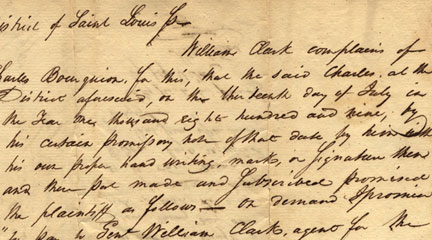 istrict of Saint Louis Ss
William Clark complains of
harles Bourguion. for this, that the said Charles, at the
District aforesaid, on the thirteenth day of July in
the Year one thousand eight hundred and nine, by
his certain promissory note of that date by him with
his own proper hand writing, mark, or signature there
and then put made and subscribed promised
the plaintiff as follows — on demand I promise
to pay to Genl William Clark, agent for the